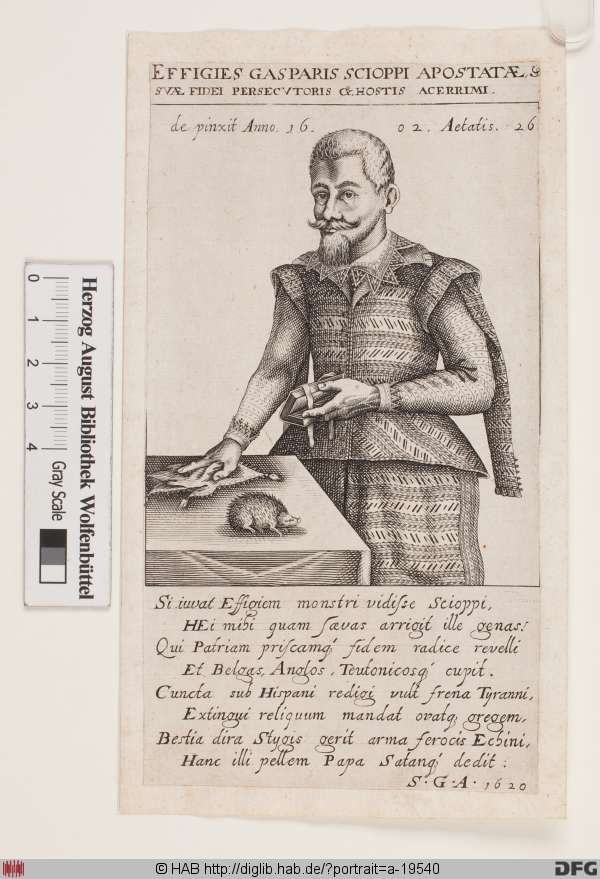 EFFIGIES GASPARIS SCIOPPI APOSTATÆ, &
SVÆ FIDEI PERSECVTORIS & HOSTIS ACERRIMI.
de pinxit Anno. 16. 02. Aetatis. 26
0 1 2 3 4
Herzog August Bibliothek Wolfenbüttel
Gray Scale
Si iuvat Effigiem monstri vidisse Scioppi,
HEi mihi quam sævas arrigit ille genas!
Qui Patriam priscamq́ fidem radice revelli
Et Belgas, Anglos, Teutonicosq́ cupit.
Cuncta sub Hispani redigi vult frena Tyranni,
Extingui reliquum mandat ovatq́ gregem,
Bestia dira Stygis gerit arma ferocis Echini,
Hanc illi pellem Papa Satanq́ dedit:
S. G. A. 1620
© HAB http://diglib.hab.de/?portrait=a-19540
DFG